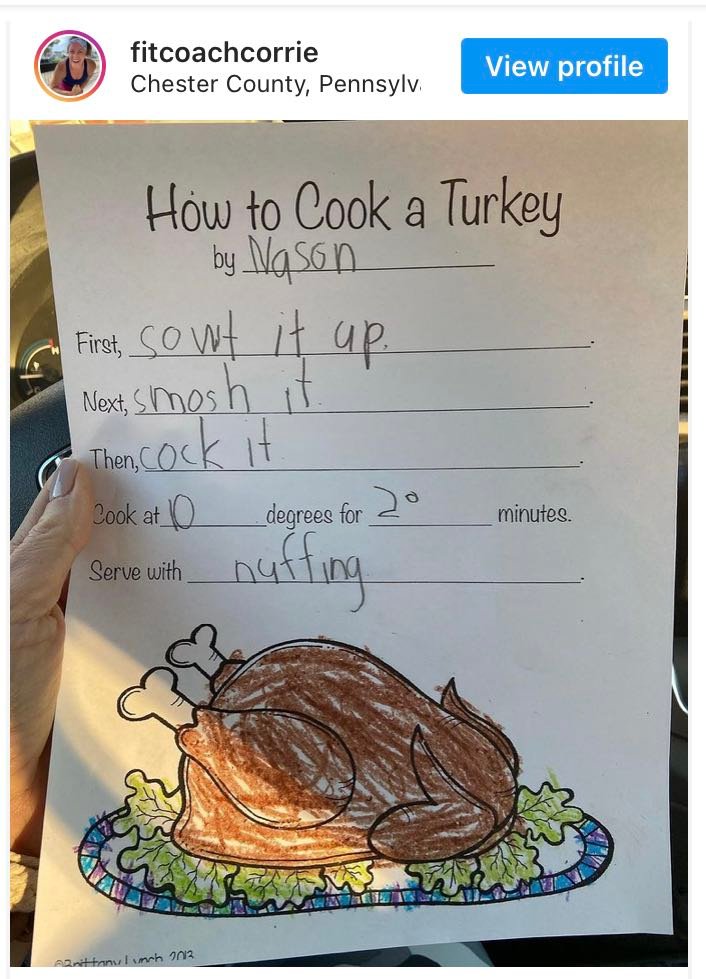 fitcoachcorrie
Chester County, Pennsylv
View profile
How to Cook a Turkey
by Nason
First, sowt it up.
Next, smosh it.
Then, cock it.
Cook at 10 degrees for 20 minutes.
Serve with nuffing.
©Brittany Lynch 2013